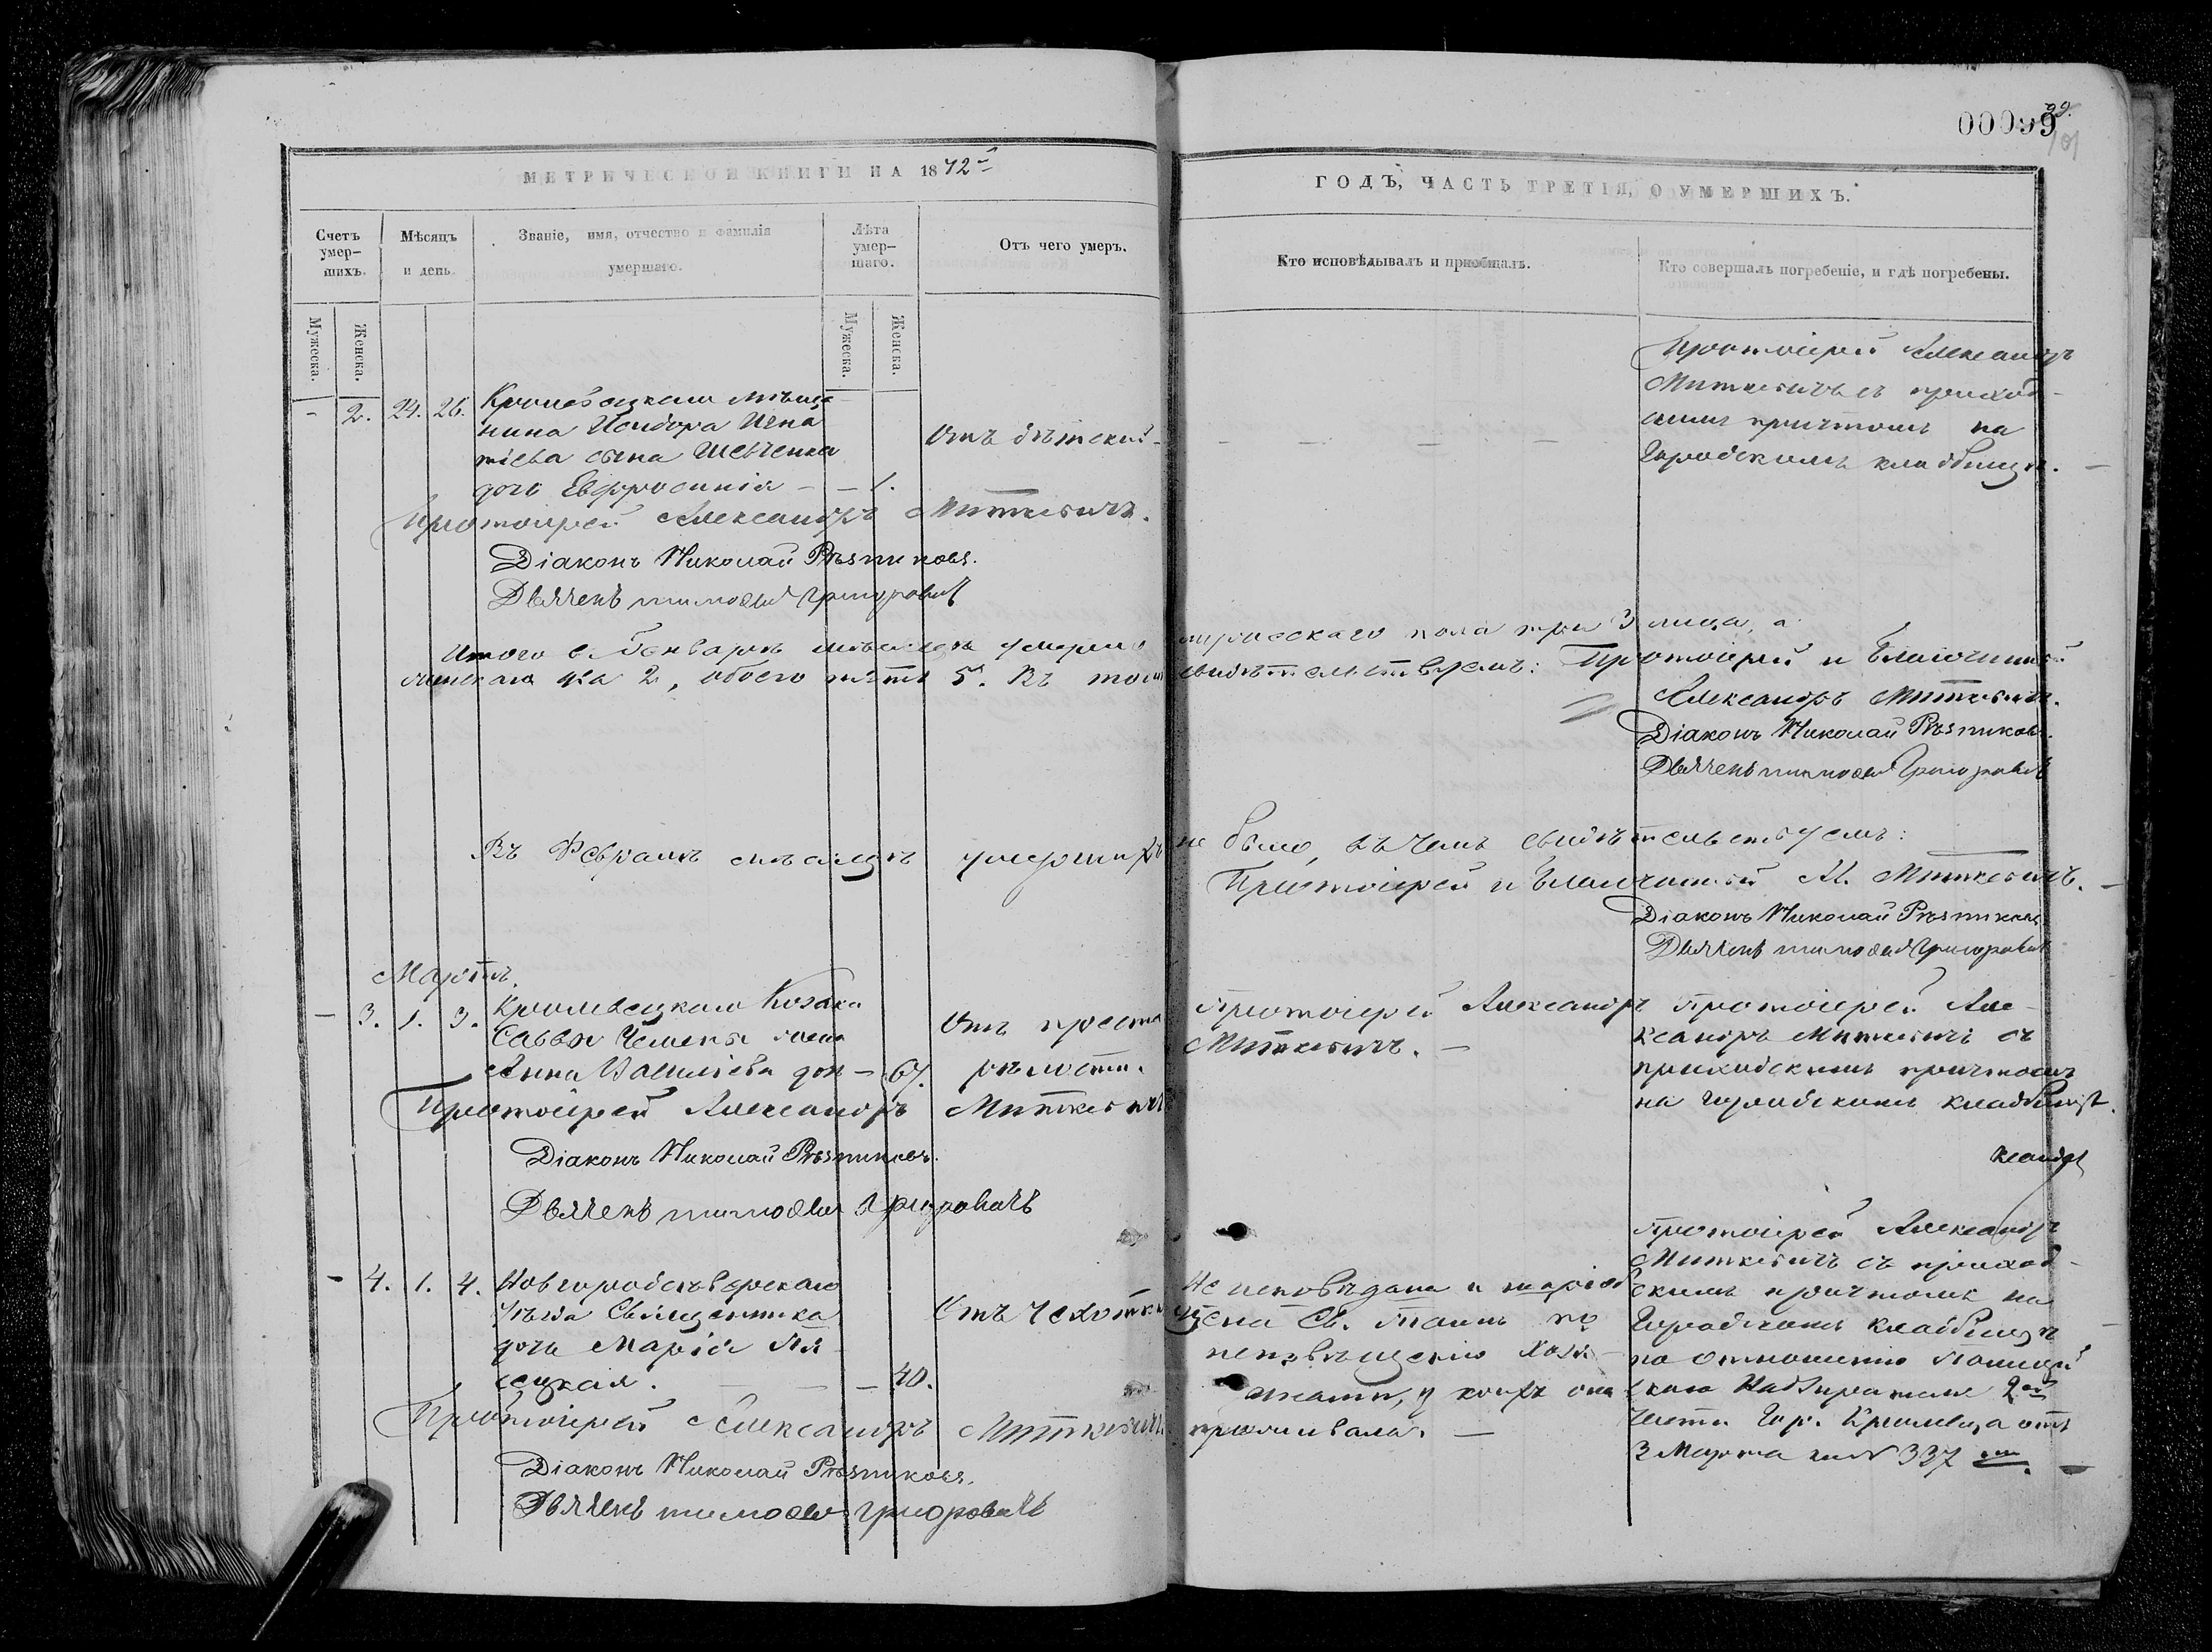 00099
99
МЕТРИЧЕСКОЙ КНИГИ НА 1872й
ГОДЪ, ЧАСТЬ ТРЕТІЯ, О УМЕРШИХЪ.
Счетъ умер-
шихъ.
Мѣсяцъ
и день
Званіе, имя, отчество и фамилія
умершаго.
Лѣта
умер-
шаго.
Отъ чего умеръ.
Кто исповѣдывалъ и пріобщалъ.
Кто совершалъ погребеніе, и гдѣ погребены.
Мужеска.
Женска.
Мужеска.
Женска.
- 2. 24. 26.
Кролевецкаго мѣща
нина Исидора Игна
тіева сына Шевченка
дочь Евфросинія - - 1.
Отъ дѣтской -
Протоіерей Александръ
Миткевичъ съ приход-
скимъ причтомъ на
Городскомъ кладбищѣ. -
Протоіерей Александръ Миткевичъ.
Діаконъ Николай Рѣзниковъ.
Дьячекъ Тимоѳей Григоровичъ
Итого в Генварѣ мѣсяцѣ умерло мужескаго пола три 3 лица, а
женскаго два 2, обоего пять 5. Въ томъ свидѣтельствуемъ: Протоіерей и Благочинный
Александръ Миткевичъ.
Діаконъ Николай Рѣзниковъ.
Дьячекъ Тимоѳей Григоровичъ
Въ Февралѣ мѣсяцѣ умершихъ не было, въ чемъ свидѣтельствуемъ:
Протоіерей и Благочинный Ал. Миткевичъ. -
Діаконъ Николай Рѣзниковъ
Дьячекъ Тимоѳей Григоровичъ
Мартъ.
- 3. 1. 3.
Кролевецкаго Козака
Саввы жена
Анна Василіева дочь - 67.
Отъ преста
рѣлости.
Протоіерей Александръ
Миткевичъ. -
Протоіерей Але-
ксандръ Миткевичъ съ
приходскимъ причтомъ
на Городскомъ кладбищѣ.
Протоіерей Александръ Миткевичъ
Діаконъ Николай Рѣзниковъ.
Дьячекъ Тимоѳей Григоровичъ
- 4. 1. 4.
Новгородсѣверскаго
уѣзда Священника
дочь Марія
- 40.
Отъ чахотки
Не исповѣдана и не пріоб
щена Св. Таинъ по
неизвѣщенію
у коихъ она
проживала. -
Протоіерей Александръ
Миткевичъ съ приход-
скимъ причтомъ на
Городскомъ кладбищѣ
по отношенію Полицей
скаго Надзирателя 2ой
части Гор. Кролевца отъ
3 Марта за № 337 -
Протоіерей Александръ Миткевичъ.
Діаконъ Николай Рѣзниковъ.
Дьячекъ Тимоѳей Григоровичъ